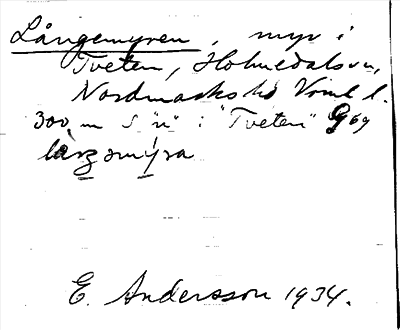 Långemyren, myr i
Tveten, Holmedals sn,
Nordmarks hd Vrml. l.
300 m S "n" i "Tveten" G69
låŋɜomýra
E. Andersson 1934.